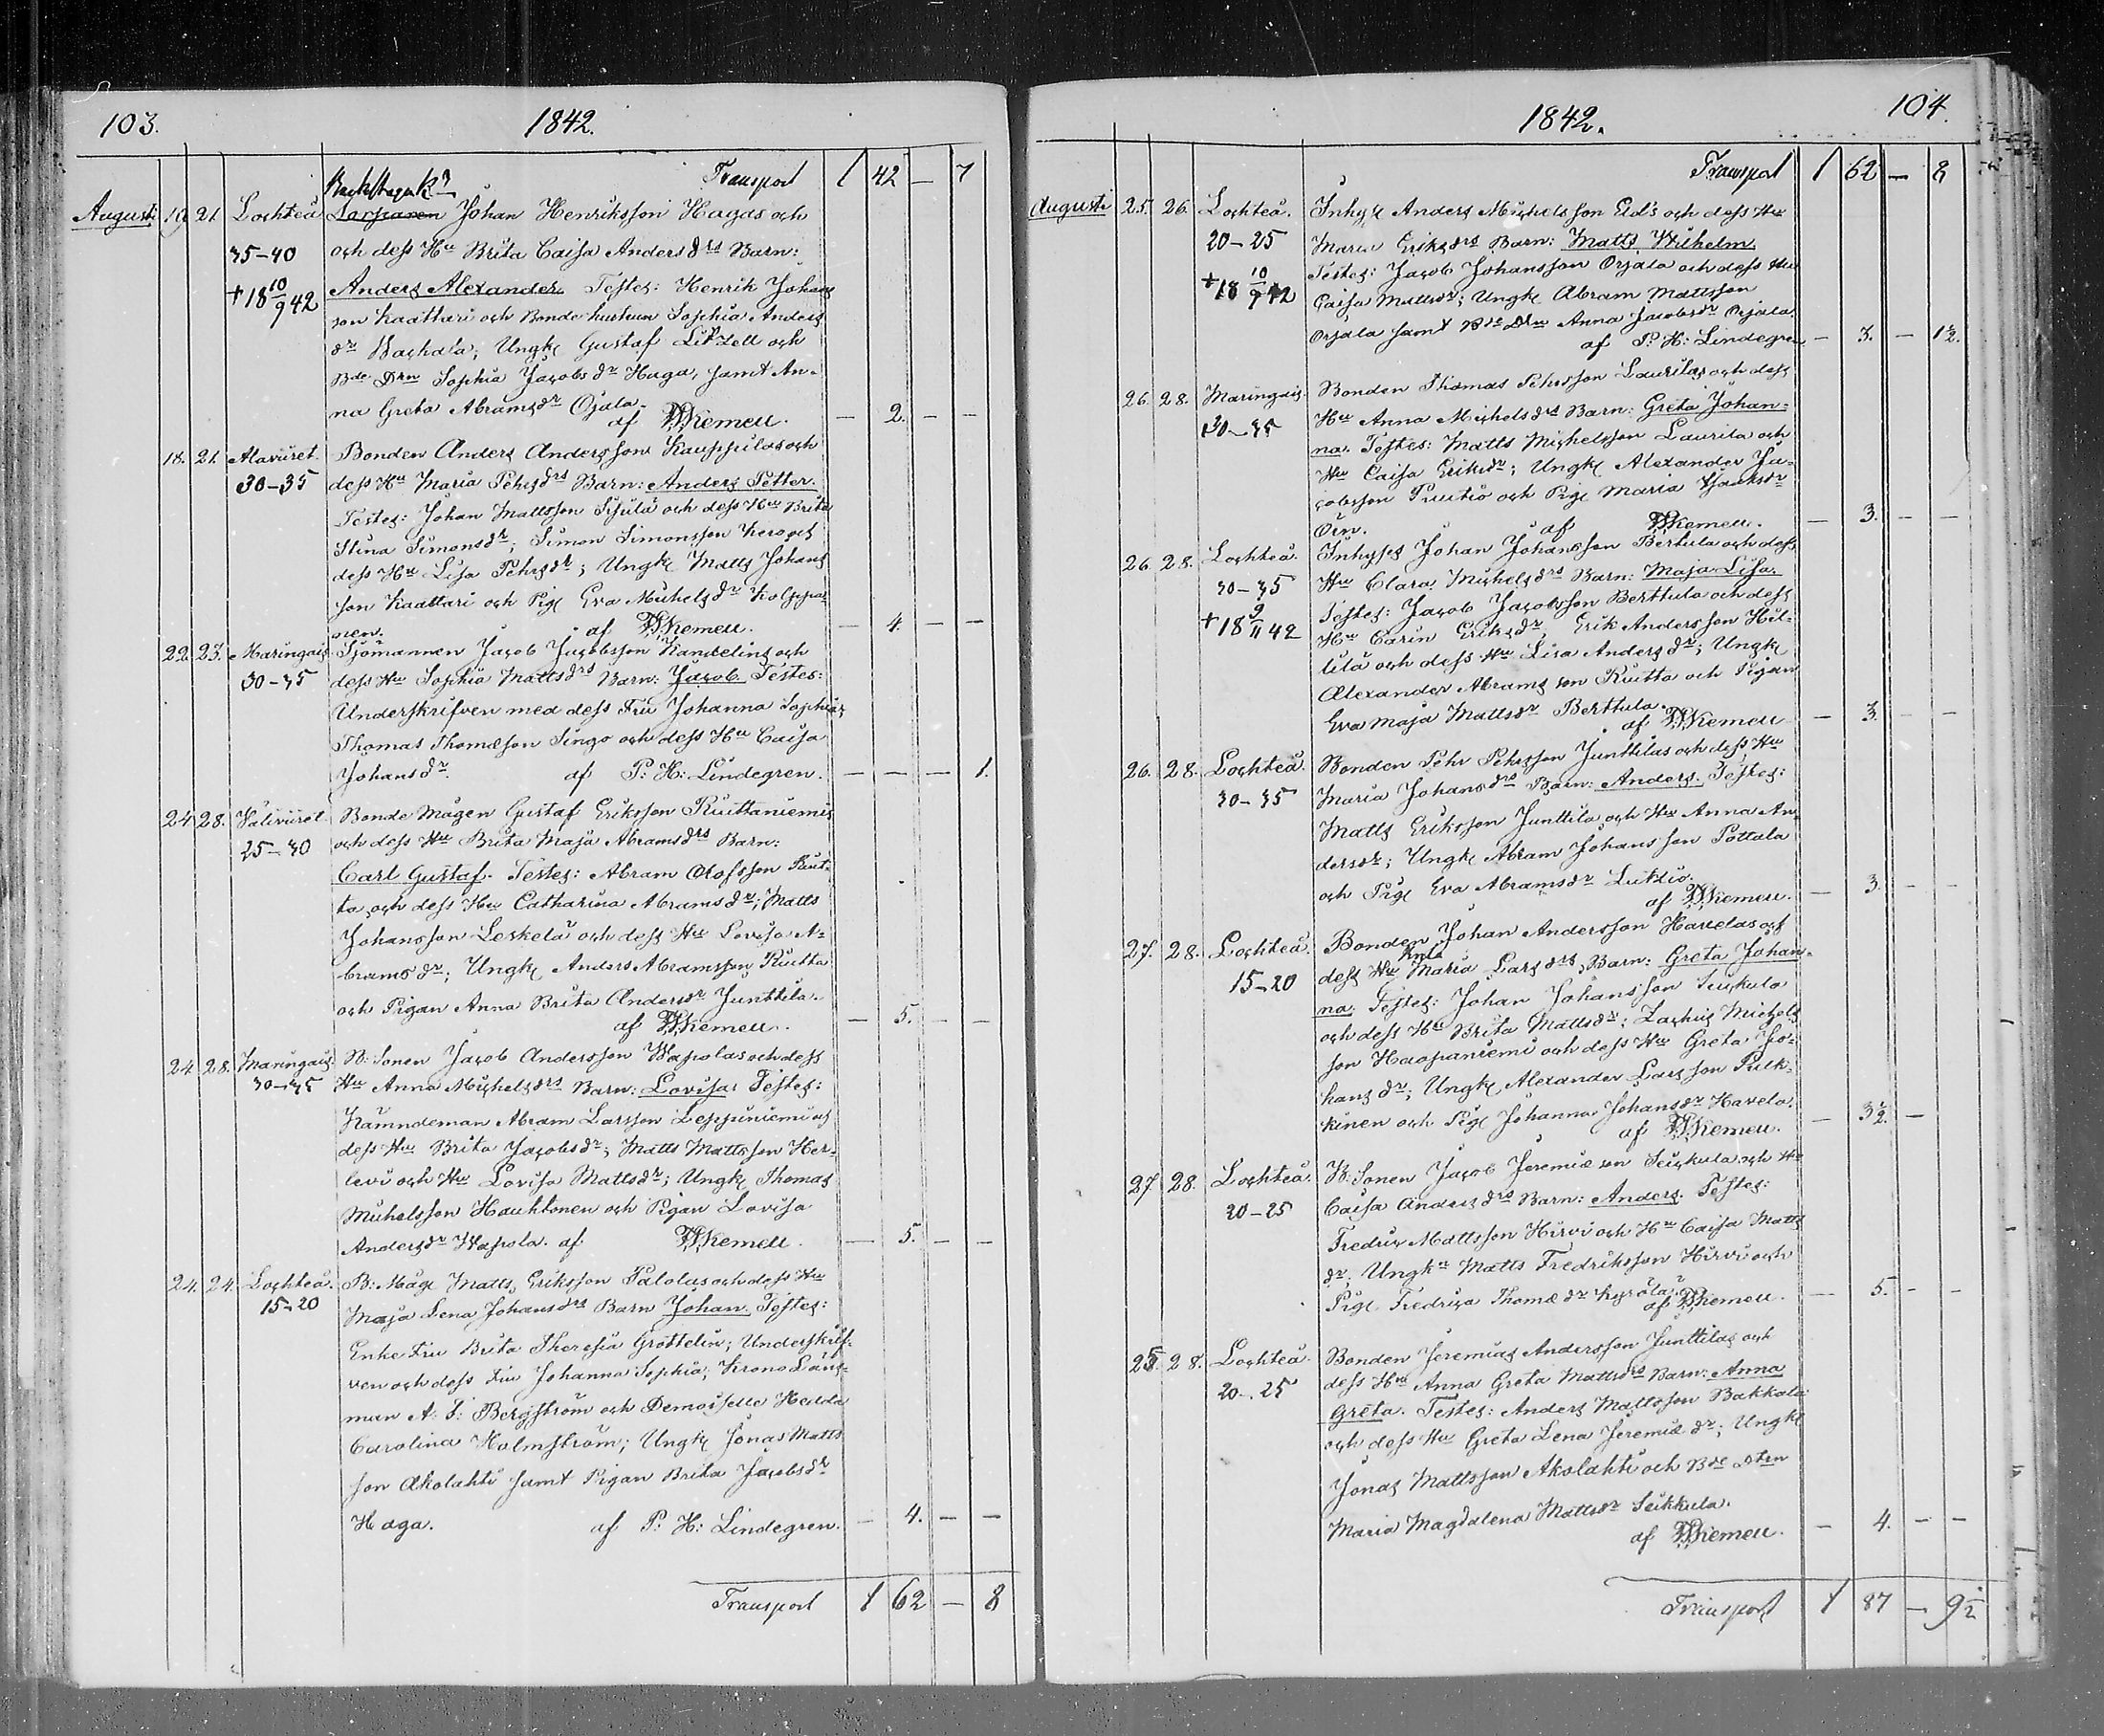 103.
1842.
Transport 1 42 — 7
Augusti 19 21. Lochteå Larsparen Johan Henriksson Hagas och
35-40 och dess Hu Brita Caisa Andersdrs Barn:
+18 10/9 42 Anders Alexander. Testes: Henrik Johans
son Kaattari och Bonde hustrun Sophia Anders
dr Bachala; Ungk Gustaf Litzell och
Bde Dtrn Sophia Jacobsdr Haga, samt An-
na Greta Abramsdr Ojala.
af Kemell. — 2. — —
18. 21. Alaviiret. Bonden Anders Andersson Kauppilas och
30-35 dess Hu Maria Pehrsdrs Barn: Anders Petter.
Testes: Johan Mattsson Sipilä och dess Hu Brita
Stina Simonsdr; Simon Simonsson Kero och
dess Hu Lisa Pehrsdr; Ungk Matts Johans
son Kaattari och Pig Eva Michelsdr Kolppa-
nen. af Kemell. — 4. — —
22. 23. Maringais. Sjömannen Jacob Jacobsson Kandelins och
30-35 dess Hu Sophia Mattsdrs Barn: Jacob. Testes:
Underskrifven med dess Fru Johanna Sophia;
Thomas Thomæson Singo och dess Hu Caisa
Johansdr. af P: H: Lindegren. — — — 1.
24. 28. Väliviiret. Bonde Mågen Gustaf Eriksson Ruuttaniemis
25-30 och dess Hu Brita Maja Abramsdrs Barn:
Carl Gustaf. Testes: Abram Olofsson Ruut-
ta och dess Hu Catharina Abramsdr; Matts
Johansson Leskelä och dess Hu Lovisa A-
bramsdr; Ungk Anders Abramsson Ruutta
och Pigan Anna Brita Andersdr Junttila.
af Kemell. — 5. — —
24. 28. Maringais. B: Sonen Jacob Andersson Wapolas och dess
30-35 Hu Anna Michelsdrs Barn: Lovisa: Testes:
Nämndeman Abram Larsson Leppiniemi och
dess Hu Brita Jacobsdr; Matts Mattsson Her-
levi och Hu Lovisa Mattsdr; Ungk Thomas
Michelsson Hauhtonen och Pigan Lovisa
Andersdr Wapola. af Kemell. — 5. — —
24. 24. Lochteå. B: Måg Matts Eriksson Palolas och dess Hu
15-20 Maja Lena Johansdrs Barn Johan. Testes:
Enke Fru Brita Theresia Gröttelin; Underskrif-
ven och dess Fru Johanna Sophia; Krono Läns-
man A: J: Bergström och Demoiselle Hedda
Carolina Holmström; Ungk Jonas Matts
son Akolahti samt Pigan Brita Jacobsdr
Haga. af P: H: Lindegren. — 4. — —
Transport 1 62 — 8
104.
1842.
Transport 1 62 — 8
Augusti 25. 26. Lochteå. Inhys Anders Michelsson Eids och dess Hu
20-25 Maria Eriksdrs Barn: Matts Wilhelm.
+18 10/9 42 Testes: Jacob Johansson Orjala och dess Hu
Caisa Mattsdr; Ungk Abram Mattsson
Orjala samt Bde Dtrn Anna Jacobsdr Orjala.
af P: H: Lindegren — 3. — 1/2.
26. 28. Maringais. Bonden Thomas Pehrsson Laurilas och dess
30-35 Hu Anna Michelsdrs Barn: Greta Johan-
na. Testes: Matts Michelsson Laurila och
Hu Caisa Eriksdr; Ungk Alexander Ja-
cobsson Puutio och Pig Maria Isaksdr
Örn. af Kemell. — 3. — —
26. 28. Lochteå. Inhyses Johan Johansson Berttula och dess
30-35 Hu Clara Michelsdrs Barn: Maja Lisa.
+18 9/11 42 Testes: Jacob Jacobsson Berttula och dess
Hu Carin Eriksdr, Erik Andersson Hil-
lilä och dess Hu Lisa Andersdr; Ungk
Alexander Abramsson Ruutta och Pigan
Eva Maja Mattsdr Berttula.
af Kemell — 3. — —
26. 28. Lochteå. Bonden Pehr Pehrsson Junttilas och dess Hu
30-35 Maria Johansdrs Barn: Anders. Testes:
Matts Eriksson Junttila och Hu Anna An-
dersdr; Ungk Abram Johansson Pottala
och Pig Eva Abramsdr
af Kemell. — 3 — —
27. 28. Lochteå. Bonden Johan Andersson Havelas och
dess Hu Maria Larsdrs Barn: Greta Johan-
15-20 na. Testes: Johan Johansson Seikkula
och dess Hu Brita Mattsdr; Zachris Michels
son Haapaniemi och dess Hu Greta Jo-
hansdr; Ungk Alexander Larsson Pulk-
kinen och Pig Johanna Johansdr Havela.
af Kemell. — 3 1/2. —
27. 28. Lochteå. B: Sonen Jacob Jeremiæson Seikkula och Hu
20-25 Caisa Andersdrs Barn: Anders. Testes:
Fredric Mattsson Hirvi och Hu Caisa Matts
dr; Ungkn Matts Fredriksson Hirvi och
Pig Fredrica Thomædr Kyrölä.
af Kemell. — 5. — —
25. 28. Lochteå. Bonden Jeremias Andersson Junttilas och
20-25 dess Hu Anna Greta Mattsdrs Barn: Anna
Greta. Testes: Anders Mattsson Bakkala
och dess Hu Greta Lena Jeremiædr; Ungk
Jonas Mattsson Akolahti och Bde Dtrn
Maria Magdalena Mattsdr Seikkula.
af Kemell. — 4. — —
Transport 1 87 — 9 1/2